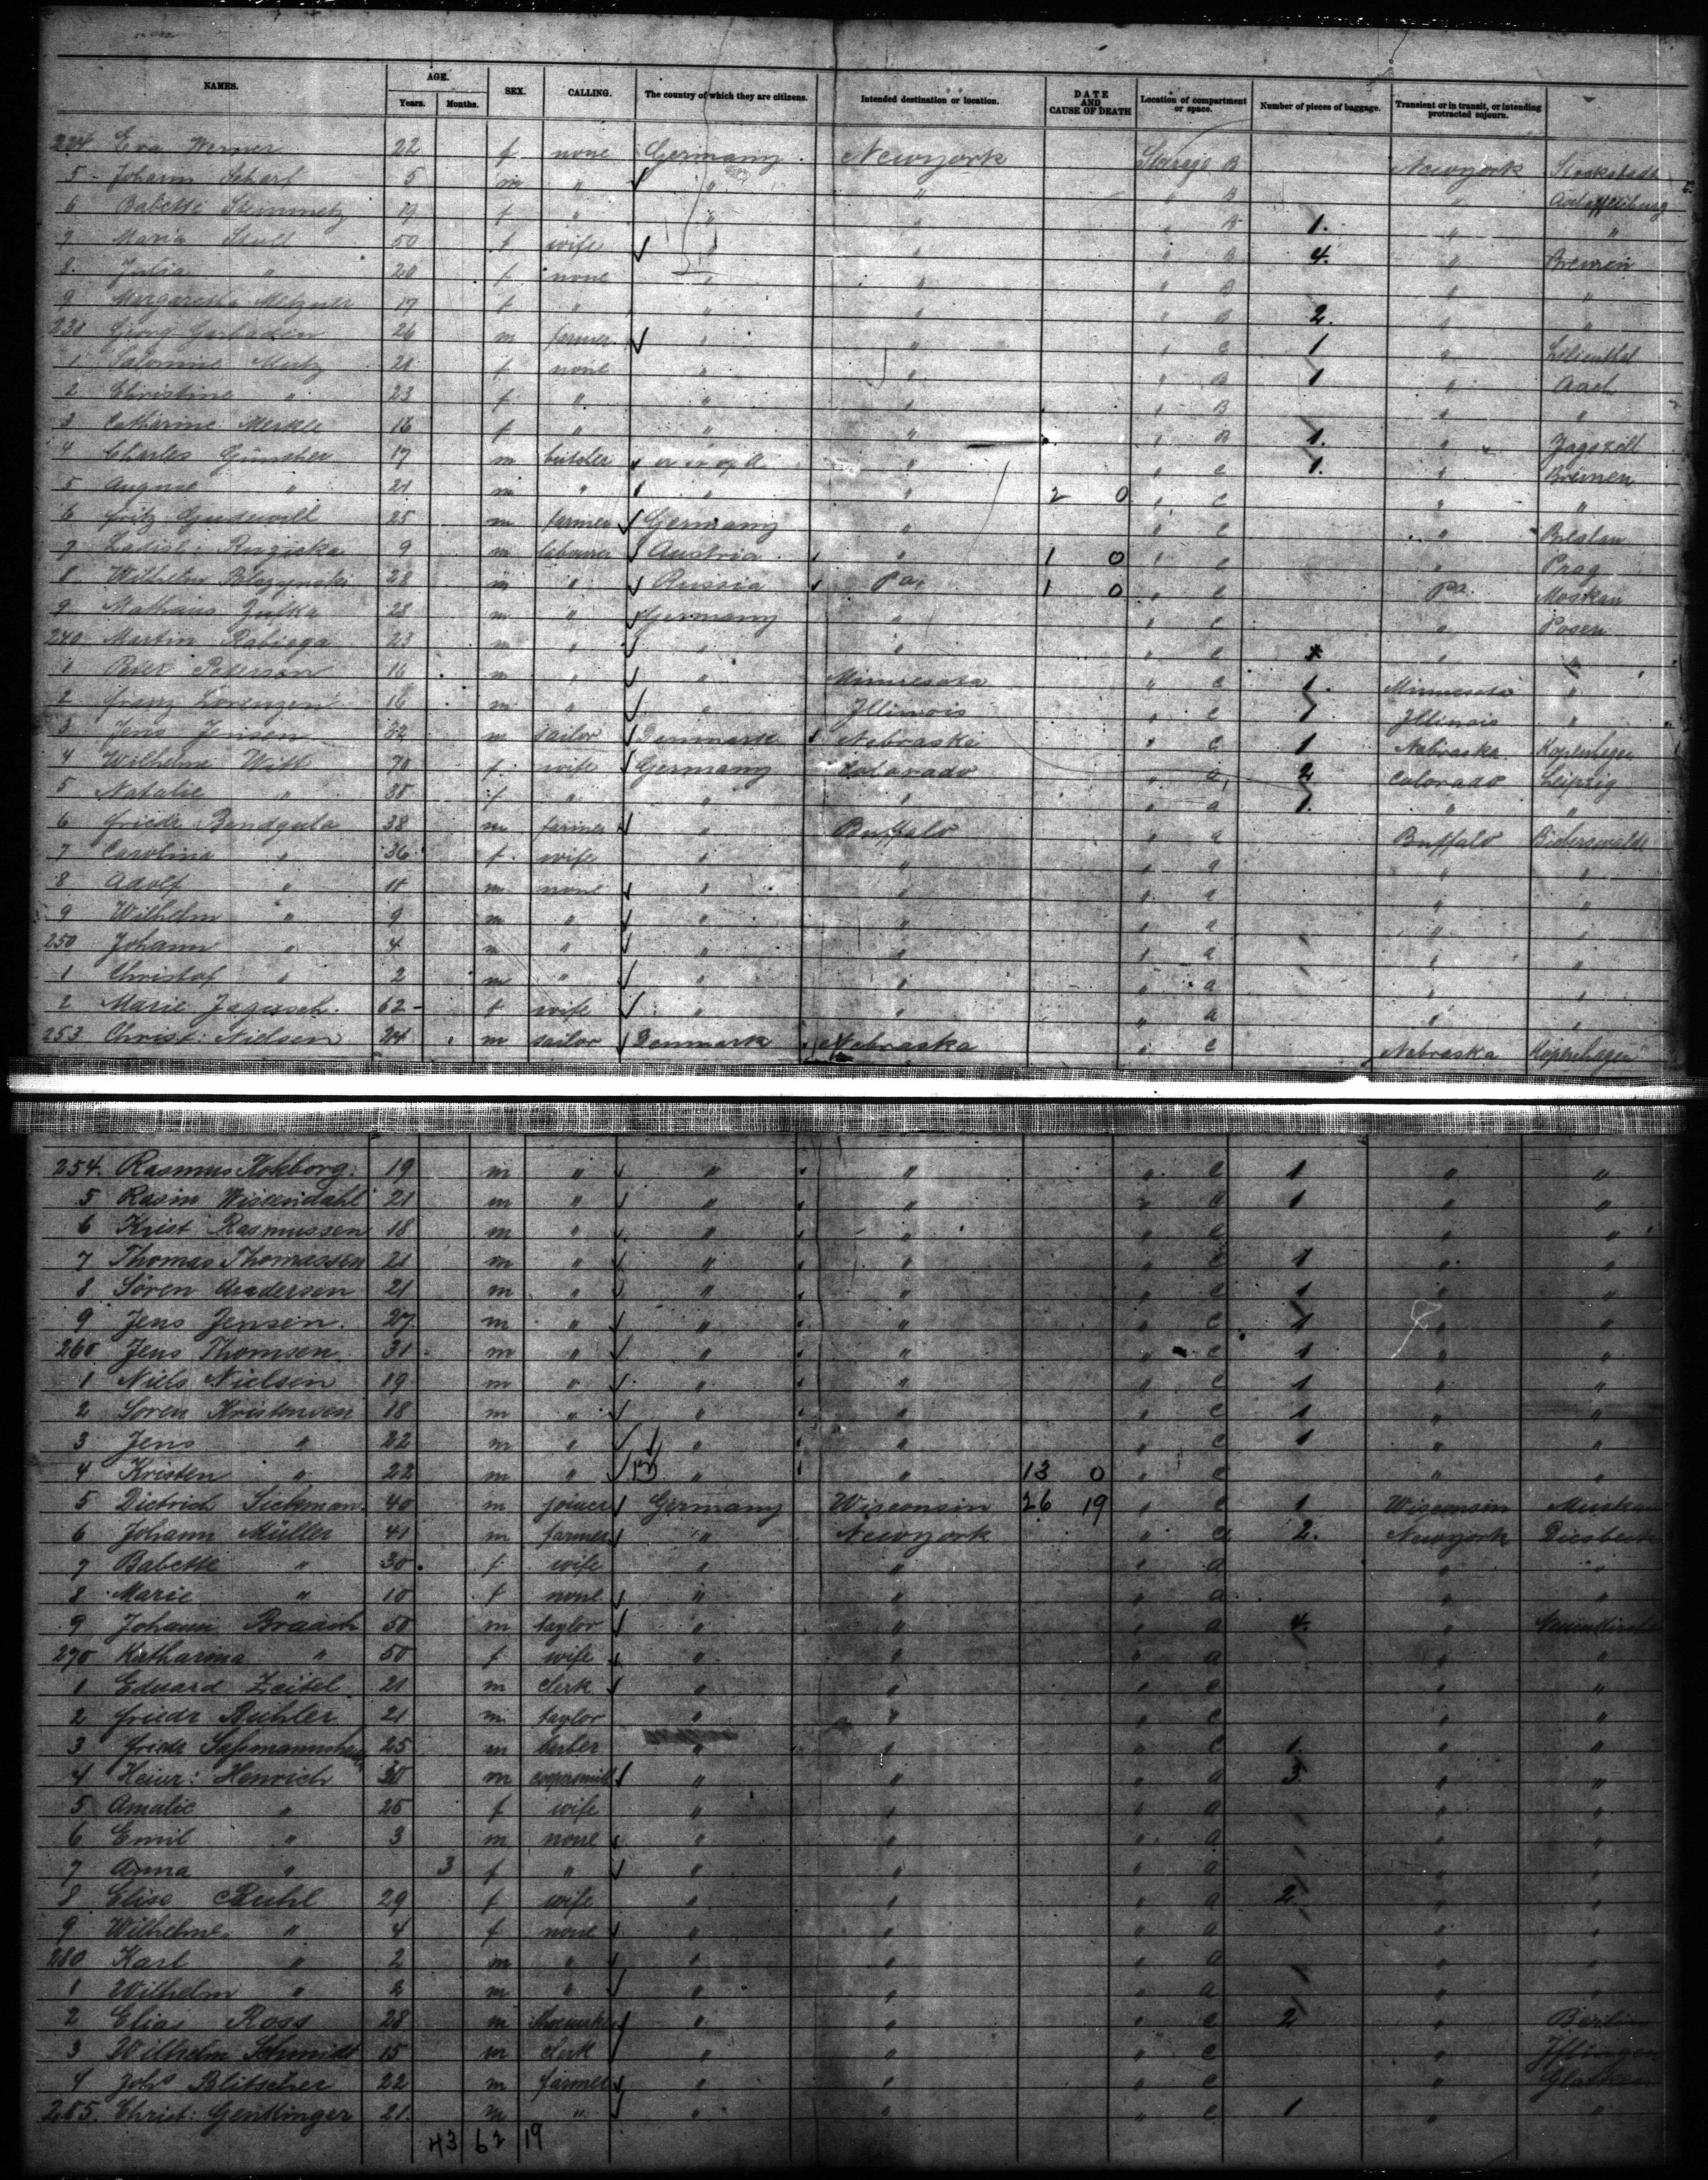 NAMES. AGE. Years. Months. SEX. CALLING. The country of which they are citizens. Intended destination or location. DATE AND CAUSE OF DEATH Location of compartment or space. Number of pieces of baggage. Transient or in transit, or intending protracted sojourn.
224 Eva Werner 22 f none Germany Newyork B Newyork
5 Johann Scharf 5 m " " " " B "
6 Babette Steinmetz 19 f " " " " B 1. " "
7 Maria 50 f wife " " " B 4. " Bremen
8 Julia " 20 f none " " " B " "
9 Margaretha Metzner 17 f " " " " B 2. " "
230 Georg 26 m farmer " " " C 1 " Lilienthal
1 Salomine 21 f none " " " B 1 "
2 Christine " 23 f " " " " B " "
3 Catharine Merkle 16 f " " " " B 1. "
4 Charles Günsher 17 m butcher " " C 1. " Bremen
5 August " 21 m " " " 2 0 " C " "
6 Fritz Gudewill 25 m farmer Germany " " C " Breslau
7 Ladisl: Ruzicka 9 m labourer Austria " 1 0 " C " Prag
8 Wilhelm 28 m " Russia Pa. 1 0 " C Pa. Moskau
9 Mathaus Zufka 28 m " Germany " " C " Posen
240 Martin Rabiega 23 m " " " " C " "
1 Peter Peterson 16 m " " Minnesota " C 1. Minnesota "
2 Franz Lorenzen 16 m " " Illinois " C 1 Illinois "
3 Jens Jensen 32 m sailor Denmark Nebraska " C 1 Nebraska Kopenhagen
4 Wilhelme Witt 70 f wife Germany Colorado " a 2 Colorado Leipzig
5 Natalie " 38 f " " " " a 1. " "
6 Friedr Bandgula 38 m farmer " Buffalo " a Buffalo
7 Carolina " 36 f wife " " " a " "
8 Adolf " 11 m none " " " a " "
9 Wilhelm " 9 m " " " " a " "
250 Johann " 4 m " " " " a " "
1 Christof " 2 m " " " " a " "
2 Marie Jagusch. 62 f wife " " " a " "
253 Christ: Nielsen 24 m sailor Denmark Nebraska " C Nebraska Kopenhagen
254. Rasmus Kokborg. 19 m " " " " C 1 " "
5 Rasm Wissendahl 21 m " " " " C 1 " "
6 Krist Rasmussen 18 m " " " " C " "
7 Thomas Thomassen 21 m " " " " C 1 " "
8 Sören Andersen 21 m " " " " C 1 " "
9 Jens Jensen. 27 m " " " " C 1 " "
260 Jens Thomsen 31 m " " " " C 1 " "
1 Niels Nielsen 19 m " " " " C 1 " "
2 Soren Kristensen 18 m " " " " C 1 " "
3 Jens " 22 m " " " " C 1 " "
4 Kristen " 22 m " " " 13 0 " C " "
5 Dietrich Siekman. 40 m joiner Germany Wisconsin 26 19 " C 1 Wisconsin
6 Johann Müller 41 m farmer " Newyork " a 2. Newyork
7 Babette " 30 f wife " " " a " "
8 Marie " 10 f none " " " a " "
9 Johann Braasch 50 m taylor " " " a 4. "
270 Katharina " 50 f wife " " " a " "
1 Eduard Zeitel 21 m clerk " " " C " "
2 Friedr Buhler 21 m taylor " " " C " "
3 Friedr 25 m barber " " " C 1 " "
4 Heinr: Henrich 30 m coopersmith " " " a 3 " "
5 Amalie " 25 f wife " " " a " "
6 Emil " 3 m none " " " a " "
7 Anna " 3 f " " " " a " "
8 Elise Buhl 29 f wife " " " a 2 " "
9 Wilhelme " 4 f none " " " a " "
280 Karl " 2 m " " " " a " "
1 Wilhelm " 2 m " " " " a " "
2 Elias Ross 28 m " " " C 2 " Berlin
3 Wilhelm Schmidt 15 m clerk " " " C "
4 Johs Blitscher 22 m farmer " " " C "
285. Christ: Gentlinger 21. m " " " " C 1 " "
43 62 19